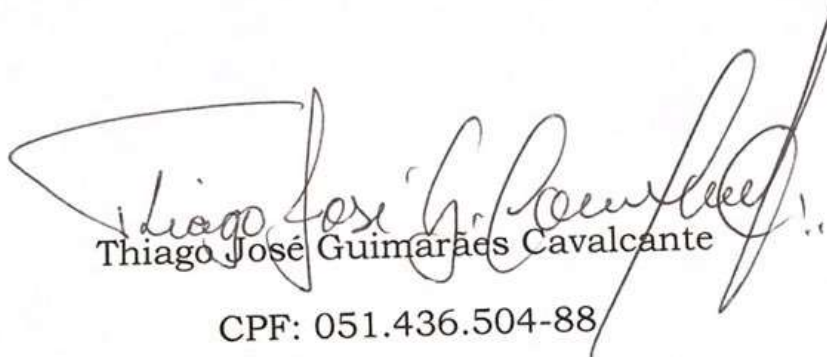 Thiago José G. Cavalcante
Thiago José Guimarães Cavalcante
CPF: 051.436.504-88